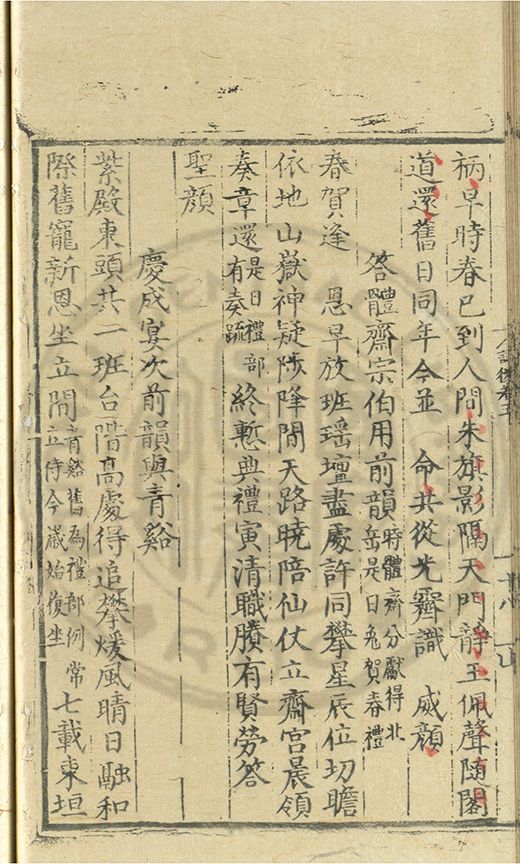 柄早時春已到人間朱旗影隔天門靜玉佩聲隨閣
道還舊日同年今並　命共從光霽識　威顏
答體齋宗伯用前韻時體齋分獻得北岳是日免賀春禮
春賀逢　恩早放班瑶壇盡處許同攀星辰位切瞻
依地山嶽神疑陟降間天路曉陪仙仗立齋宮晨領
奏章還是日禮部有奏疏終慙典禮寅清職賸有賢勞答
聖顏
慶成宴次前韻與青谿
紫殿東頭共一班台階髙處得追攀煖風晴日融和
際舊寵新恩坐立間青谿舊為禮部例常立侍今歲始復坐七載東垣